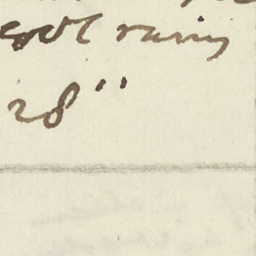 cool rainy
28"